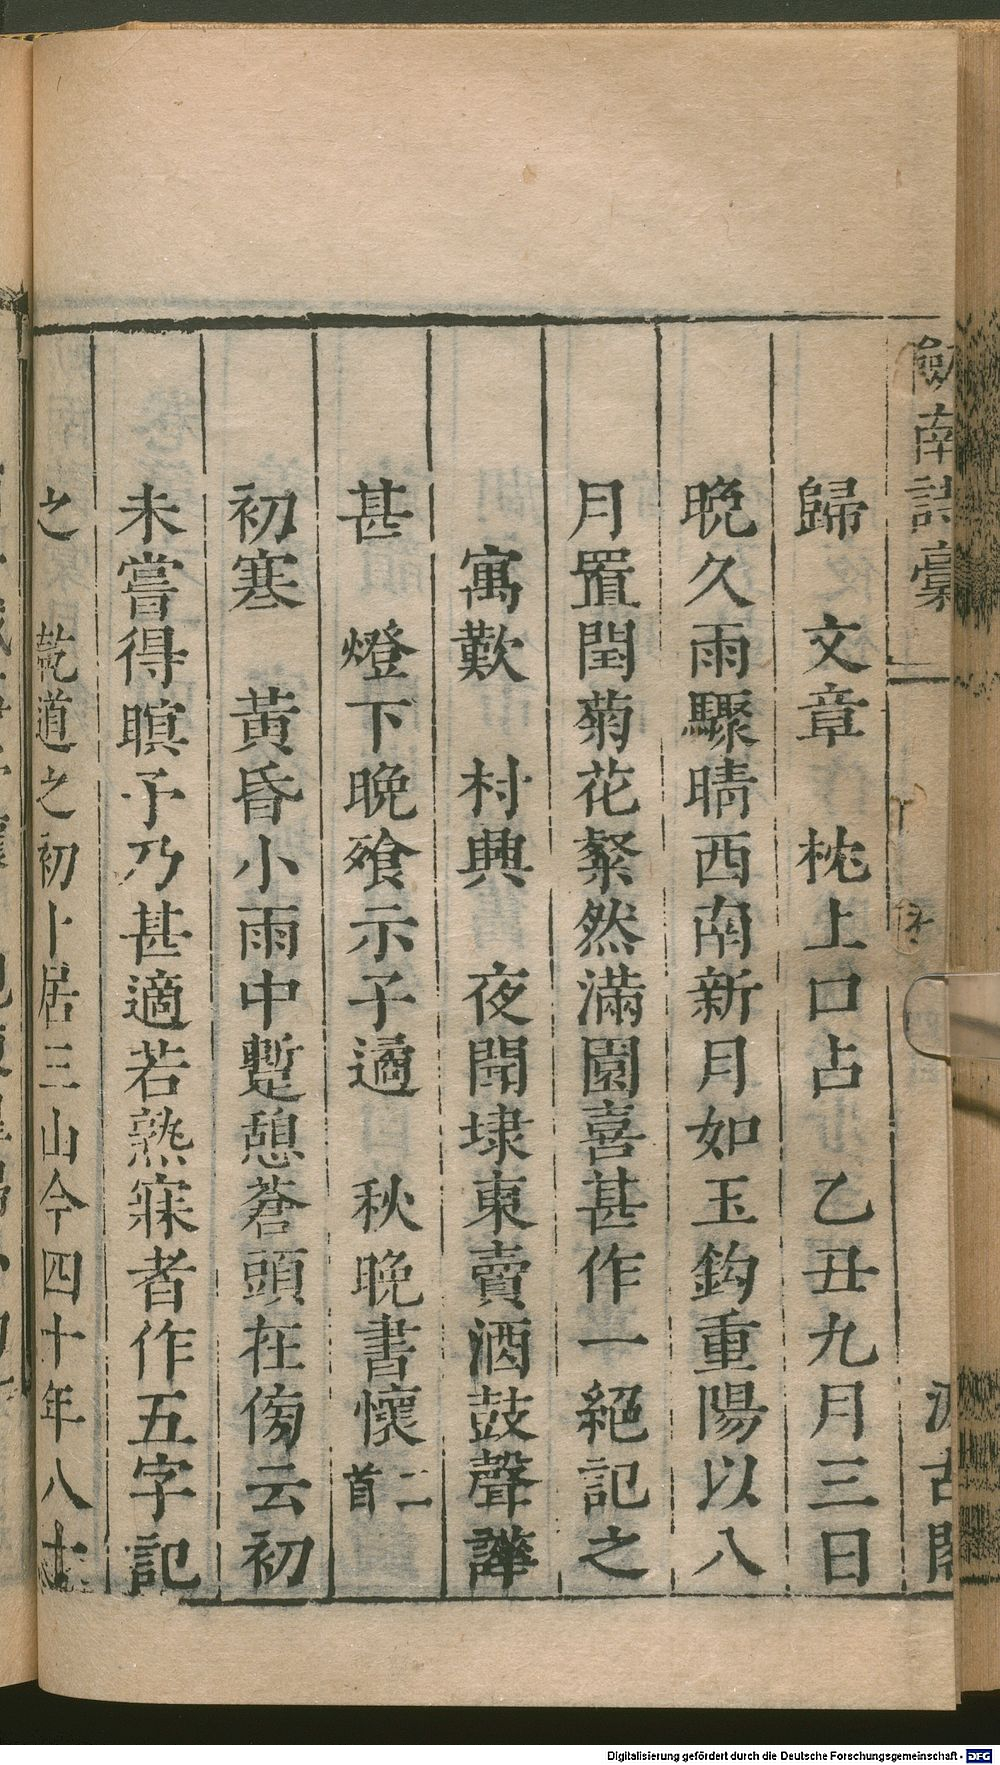 劍南詩稾
歸　文章　枕上口占　乙丑九月三日
晩久雨驟晴西南新月如玉鈎重陽以八
月置閏菊花粲然滿園喜甚作一絕記之
寓歎　村興　夜聞埭東賣酒鼓聲譁
甚　燈下晩飱示子遹　秋晩書懷二首
初寒　黃昏小雨中蹔憩蒼頭在傍云初
未嘗得瞑予乃甚適若熟寐者作五字記
之　乾道之初卜居三山今四十年八十
Digitalisierung gefördert durch die Deutsche Forschungsgemeinschaft - DFG